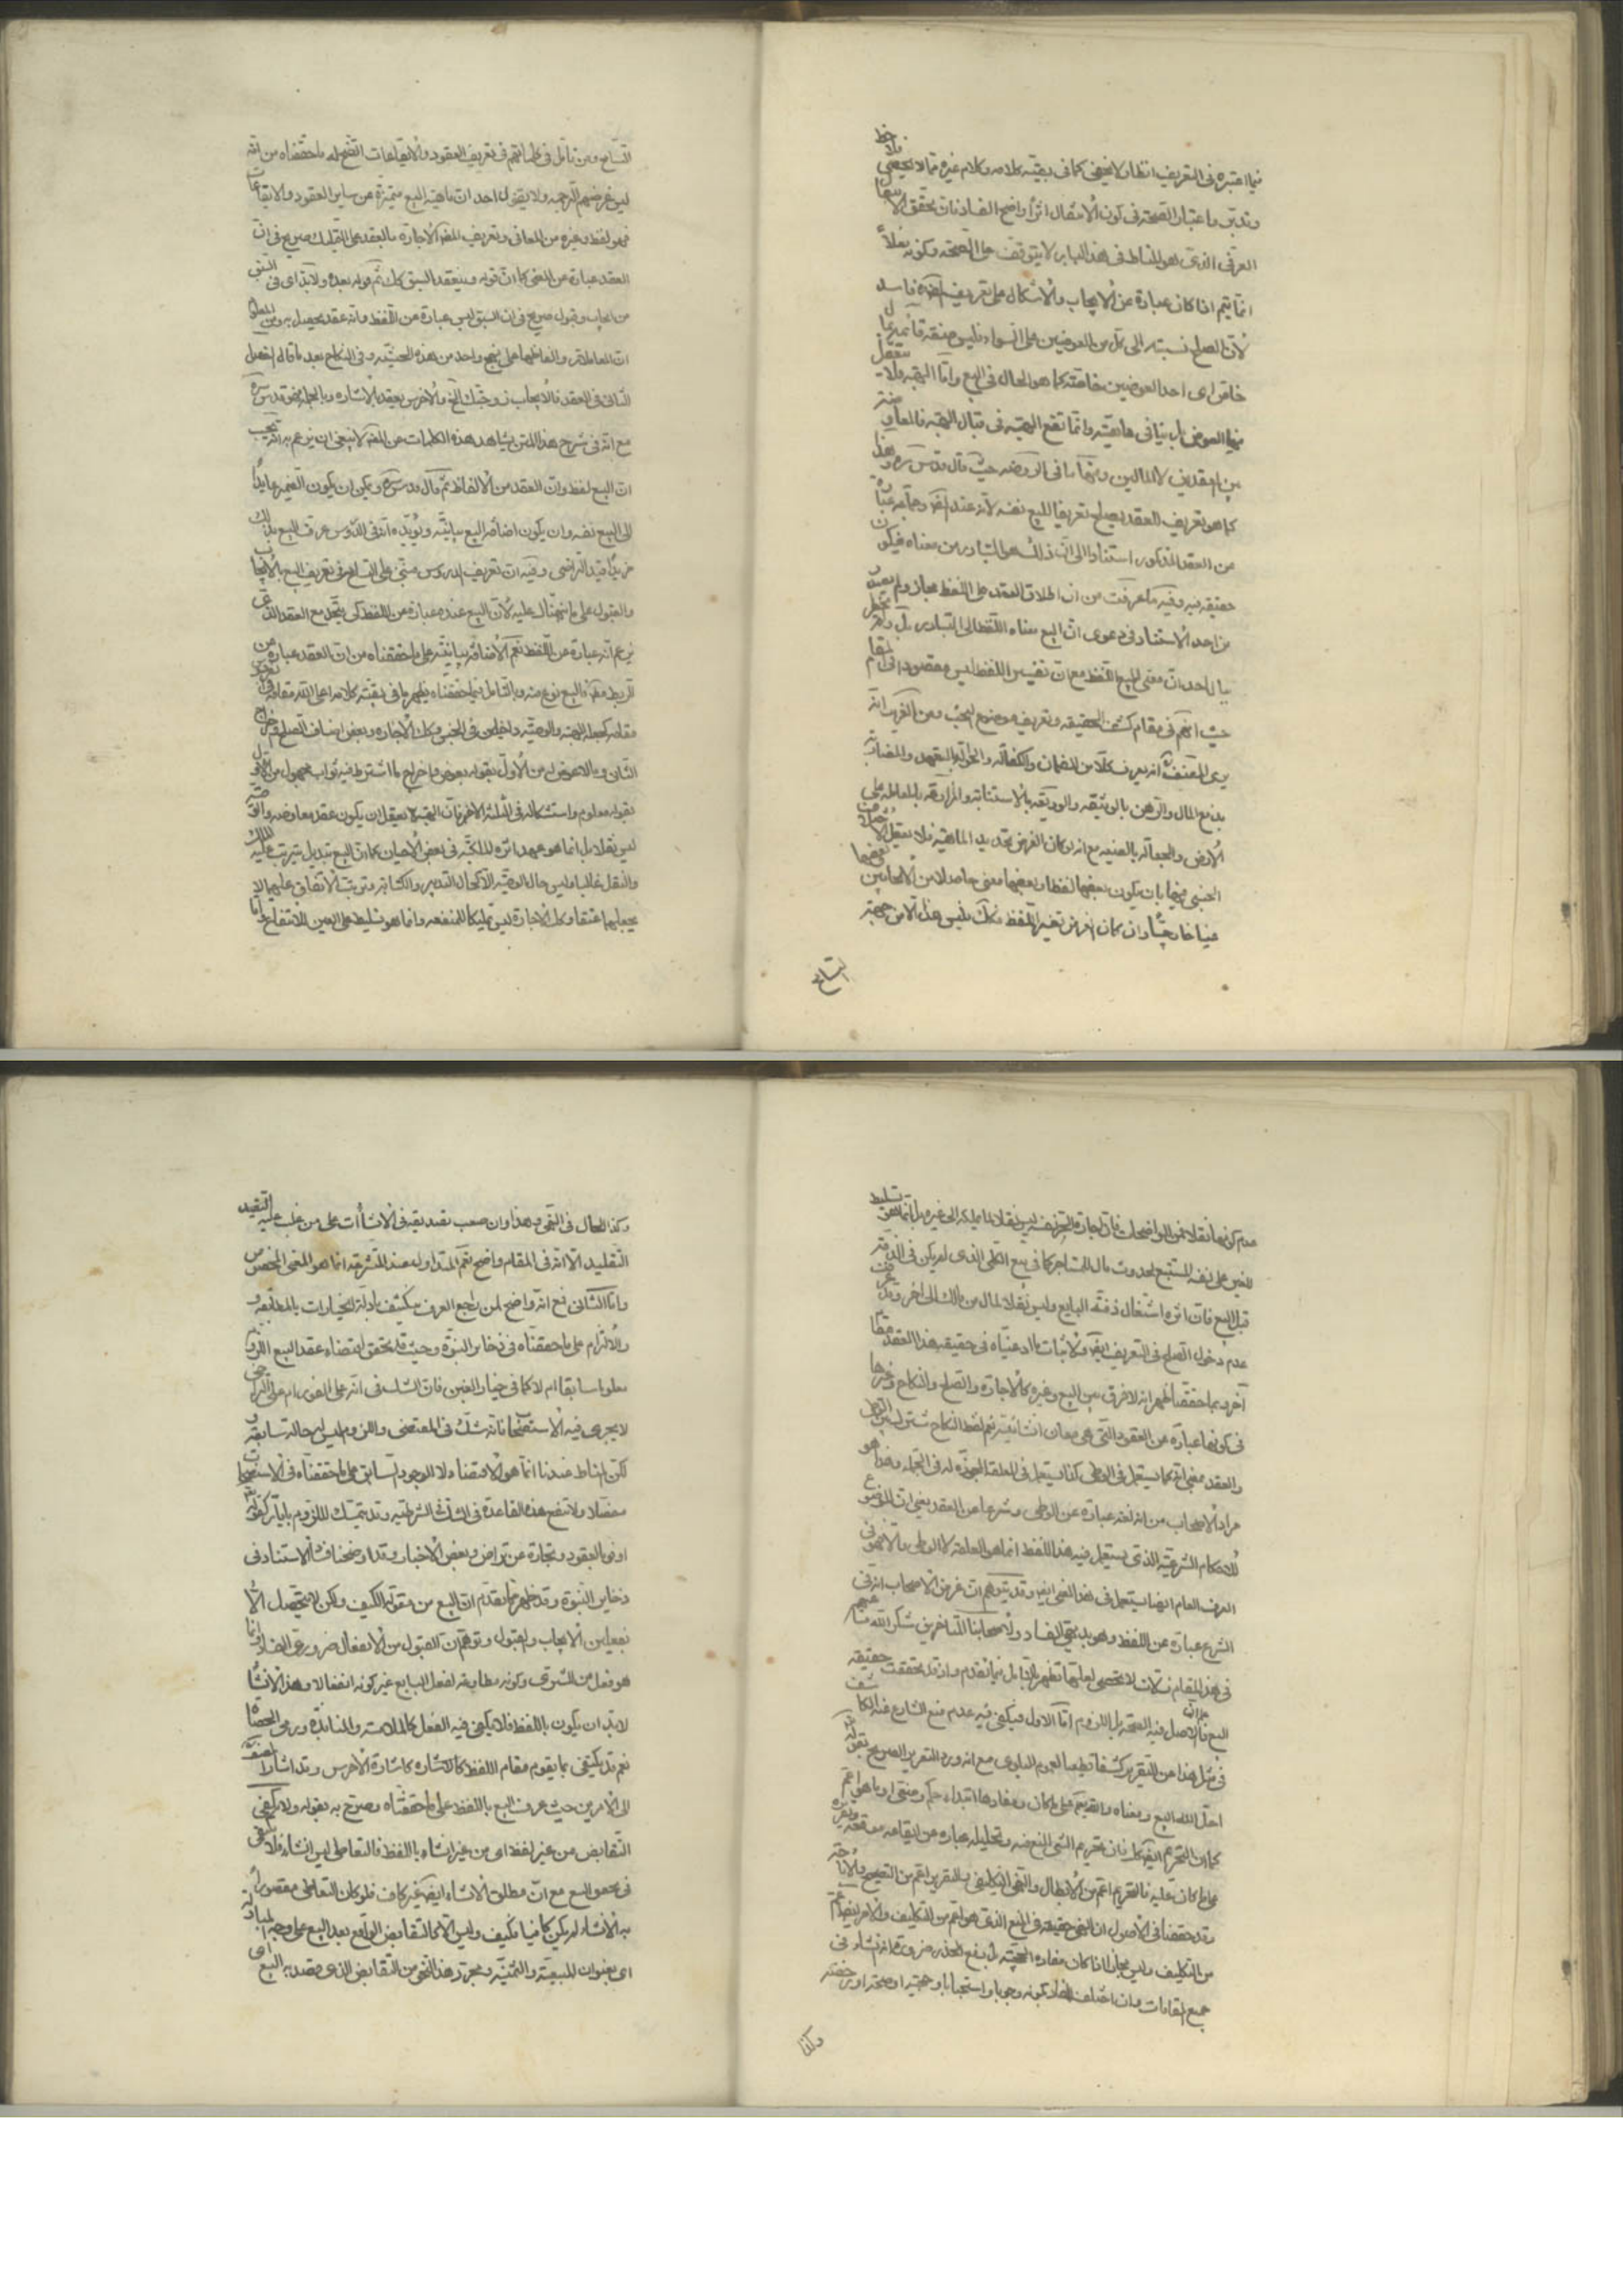 فيما اعتبره في التعريف انظار لا تخفى كما في بقية كلامه وكلام غيره مما لا يخفى
وتدبر واعتبار الصحة في كون الانتقال اثرا واضح الفساد فان تحقق الا
العرفي الذي هو المناط في هذا الباب لا يتوقف على الصحة وكونه نقلاً
انما يتم اذا كان عبارة عن الايجاب والاشكال على تعريف فاسد
لان الصلح نسبته الى كل من العوضين على السواء وليس صنفه قائما
خاص اى احد العوضين خاصة كما هو الحال في البيع واما الهبة فلا
فيها العوض بل ينافى ماهيته وانما تقع الهبة في قبال الهبة فالمعاوضة
بين العقدين لا المالين ومنها ما في الروضة حيث قال قدس سره وهذا
كما هو تعريف للعقد يصلح تعريفا للبيع نفسه لانه عند المصـ وجماعه عبارة
عن العقد المذكور استنادا الى ان ذلك هو المتبادر من معناه فيكون
حقيقة فيه وفيه ما عرفت من ان اطلاق العقد على اللفظ مجاز ولم يعهد
من احد الاستناد في دعوى ان البيع معناه اللفظ الى التبادر بل ولم يخطر
ببال احد ان معنى البيع اللفظ مع ان تفسير اللفظ ليس مقصودا في المقام
حيث انهم في مقام كشف الحقيقة وتعريف موضوع البحث ومن الغريب انه
يرى المصنف انه يعرف كلا من الضمان والكفالة والحوالة بالتعهد والمضاربة
بدفع المال والرهن بالوثيقة والوديعة بالاستنابة والمزارعة بالمعاملة على
الارض والجعالة بالصيغة مع انه ان كان الغرض تحديد الماهية فلا يعقل الاختلاف
الجنسي فيها بان يكون بعضها لفظا وبعضها معنى حاصلا من الايجابين
عينا خارجيا وان كان الغرض تفسير اللفظ فكك فليس هذا الا من جهة
التسامح
التسامح ومن تامل في كلماتهم في تعريف العقود والايقاعات اتضح له ما حققناه من انه
ليس غرضهم الترجمه ولا يقول احد ان ماهية البيع متميزة عن ساير العقود والايقاعات
فهو لفظ وغيره من المعاني وتعريف الاجارة بالعقد على التمليك صريح في ان
العقد عبارة عن المعنى كما ان قوله وينعقد السبق كك ثم قوله بعده ولا بد اى في السبق
من ايجاب وقبول صريح في ان السبق ليس عبارة عن اللفظ وانه عقد يحصل به ومن المعلوم
ان المعاملات والفاظها على نهج واحد من هذه الحيثية وفي النكاح بعد ما قال الفصل
الثانى في العقد فالايجاب زوجتك الخ والاخرس يعقد بالاشارة وبالجملة فهو قدس سره
مع انه في شرح هذا المتن يشاهد هذه الكلمات من المصـ لا ينبغي ان يزعم به انه يحسب
ان البيع لفظ وان العقد من الالفاظ ثم قال قدس سره ويمكن ان يكون الضمير عايدًا
الى البيع نفسه وان يكون اضافة البيع بيانية ويؤيده انه في الدروس عرف البيع بذلك
مزيدًا قيد التراضي وفيه ان تعريف الدروس مبتنى على التسامح في تعريف البيع بالايجاب
والقبول على ما نبهناك عليه لان البيع عنده عبارة عن اللفظ كى يتحد مع العقد الذي
يزعم انه عبارة عن اللفظ نعم الاضافة بيانية على ما حققناه من ان العقد عبارة عن
الربط والبيع نوع منه وبالتامل فيما حققناه يظهر ما في بقية كلامه اعلى الله مقامه
مقامه كجعله الهبة والوصية داخلين في الجنس وكك الاجارة وبعض اصناف الصلح
الثانى وبالاعوض له من الاول بقوله بعوض واخراج ما اشترط فيه ثواب مجهول من الاول
بقوله معلوم واستشكاله في الثلثة الاخر فان الهبة لا يعقل ان يكون عقد معاوضة والوصية
ليس نقلا بل انما هو عهد اثره الملكية في بعض الاحيان كما ان البيع تبديل يترتب عليه الملك
والنقل غالبا وليس حال الوصية الا كحال التدبير والكتابة وترتب الاتفاق عليهما لا
يجعلهما عتقا وكك الاجارة ليس تمليكا للمنفعه وانما هو تسليط على العين للانتفاع واما
عدم كونها نقلا فمن الواضحات فان اجارة الحر نفسه ليس نقلا لما يملكه الى غيره بل انما هو تسليط
للغير على نفسه المستتبع لحدوث مال للمستاجر كما في بيع الكلي الذي لم يكن في الذمة
قبل البيع فان اثره اشتغال ذمة البايع وليس نقلا لمال من مالك الى اخر وقد عرفت
عدم دخول الصلح في التعريف ايضا ولاثبات ما ادعيناه في حقيقة هذا العقد مقام
آخر وبما حققنا ظهر انه لا فرق بين البيع وغيره كالاجارة والصلح والنكاح وغيرها
في كونها عبارة عن العقود التي هي معان انشائية نعم لفظ النكاح مشترك بين الوطى
والعقد بمعنى انه كما يستعمل في الوطى كذا يستعمل في العلقة المجوزة له في الجملة وهذا هو
مراد الاصحاب من انه لغة عبارة عن الوطى وشرعا عن العقد يعني ان الموضوع
للاحكام الشرعية الذي يستعمل فيه هذا اللفظ انما هو العلقة لا الوطى والا فهو في
العرف العام ايضا يستعمل في هذا المعنى ايضا وقد يتوهم ان غرض الاصحاب انه في
الشرع عبارة عن اللفظ وهو بديهي الفساد ولاصحابنا المتاخرين شكر الله مساعيهم
في هذا المقام زلات لا تحصى لعلها تظهر بالتامل فيما تقدم واذ قد تحققت حقيقة
البيع فالاصل فيه الصحة بل اللزوم اما الاول فيكفي فيه عدم منع الشارع عنه الكاشف
في مثل هذا عن التقرير كشفا قطعيا لعموم البلوى مع انه ورد التقرير الصريح بقوله
احل الله البيع ومعناه والتقديم على ما كان ومفادها ابتداء حكم وضعي او ما هو اعم
كما ان التحريم ايضا كك فان تحريم الشئ المنع عنه وتحليله عبارة عن ابقائه موقعه وتقريره
على ما كان عليه فالتحريم اعم من الابطال والنهي التكليفي والتقرير اعم من التصحيح والاباحة
وقد حققنا في الاصول ان النهي حقيقة في المنع الذي هو اعم من التكليف والامر ايضا اعم
من التكليف وليس مجازا اذا كان مفاده
جميع المقامات وان اختلف المفاد بكونه وجوبا واستحبابا وجهتيه او صحة او رخصة
وكذا
وكذا الحال في النهي وهذا وان صعب تصديقه في الانشاات على من غلب عليه التقييد
التقليد الا انه في المقام واضح نعم المتداول عند المتشرعة انما هو المعنى المخصوص
واما الثاني فمع انه واضح لمن راجع العرف يكشف بادلة الخيارات بالمطابقة و
والالتزام على ما حققناه في ذخاير النبوة وحيث قد تحقق اقتضاء عقد البيع اللزوم
معلوما سابقا ام لا كما في خيار الغبن فان الشك في انه على الفور ام على التراخى
لا يجرى فيه الاستصحاب لانه شك في المقتضى واللزوم ليس له حالة سابقة و
لكن المناط عندنا انما هو الاقتضاء لا الوجود السابق على ما حققناه في الاستصحاب
مفصلا ولا تنفع هذه القاعدة في الشك في الشرطية وقد يتمسك للزوم بايات كقوله
اوفوا بالعقود وتجارة عن تراض وبعض الاخبار وقد اوضحنا فساد الاستناد في
ذخاير النبوة وقد ظهر مما تقدم ان البيع من مقولة الكيف ولكن لا يتحصل الا
بفعلين الايجاب والقبول وتوهم ان القبول من الانفعال ضروري الفساد وانما
هو فعل من المشترى وكونه مطاوعة لفعل البايع غير كونه انفعالا وهذا الانشاء
لا بد ان يكون باللفظ فلا يكفي فيه الفعل كالملامسة والمنابذة ورمى الحصاة
نعم قد يكتفى بما يقوم مقام اللفظ كالاشارة كاشارة الاخرس وقد اشار المصنف
الى الامرين حيث عرف البيع باللفظ على ما حققناه وصرح به بقوله ولا يكفي
التقابض من غير لفظ اى من غير انشاء باللفظ فالتعاطي ليس انشاء فلا يكفي
في تحقق البيع مع ان مطلق الانشاء ايضا غير كاف فلو كان التعاطي مقصورا
به الانشاء لم يكن كافيا فكيف وليس الا كالتقابض الواقع بعد البيع على وجه المبادلة
اى بعنوان المبيعية والثمنية ومجرد هذا النحو من التقابض الذي قصد به البيع اى